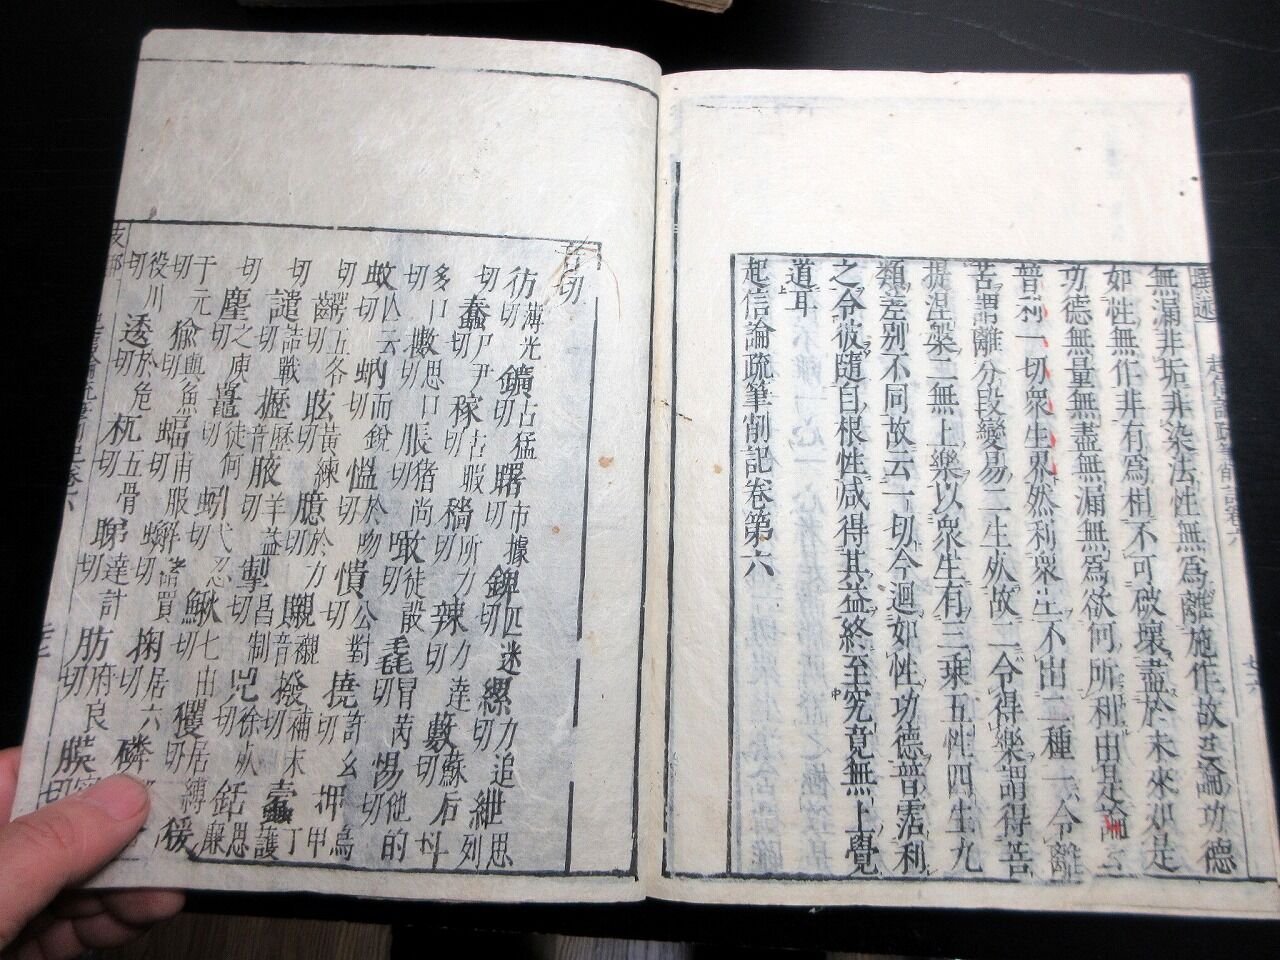 起信論疏筆削記卷六
無漏非垢非染法性無為離施作故論功德
如性無作非有為相不可破壞盡於未來如是
功德無量無盡無漏無為欲何所利由是論云
普利一切眾生界然利眾生不出二種一令離
苦謂離分段變易二生死故二令得樂謂得菩
提涅槃二無上樂以眾生有三乘五性四生九
類差別不同故云一切今迴如性功德普霑利
之令彼隨自根性咸得其益終至究竟無上覺
道耳
起信論疏筆削記卷第六
音切
彷薄光切 鑛古猛切 曙市據切 錍匹迷切 縲力追切 紲思列切
蠢尸尹切 稼古暇切 穡所力切 辣力達切 藪蘇后切 抖
多口切 擻思口切 脹猪尚切 毾冒芮切 惕他的切
蚊人云切 蚋而銳切 慍於吻切 憒公對切 撓許幺切 押烏甲切
齶五各切 眩黃練切 臆於力切 覵音襯 撥補末切 蠹丁護切
譴詰戰切 攊音歷 腋羊益切 掣昌制切 兕徐姊切 銛思廉切
塵之庾切 鼉徒何切 蚓弋忍切 鰍七由切 玃居縛切 猨
于元切 㺄與魚切 蝠甫服切 蠏諧買切 掬居六切 磷
役川切 透於危切 杌五骨切 睇達計切 肪府良切 膜